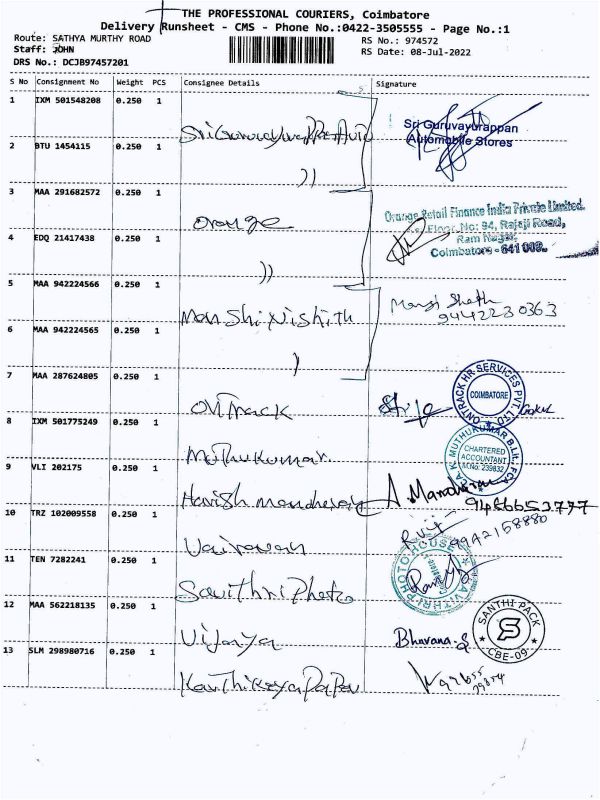 THE PROFESSIONAL COURIERS, Coimbatore
Delivery Runsheet - CMS - Phone No.:0422-3505555 - Page No.:1
Route: SATHYA MURTHY ROAD
Staff: JOHN
DRS No.: DCJB97457201
RS No.: 974572
RS Date: 08-Jul-2022
S No Consignment No Weight PCS Consignee Details Signature
1 IXM 501548208 0.250 1
Sri Guruvayurappan
Automobile Stores
2 BTU 1454115 0.250 1
3 MAA 291682572 0.250 1
Orange
Orange Retail Finance India Private Limited.
Floor, No: 94, Rajaji Road,
Ram Nagar,
Coimbatore - 641 009.
4 EDQ 21417438 0.250 1
5 MAA 942224566 0.250 1
Manshi Nishith
Mansi Sheth
9442230363
6 MAA 942224565 0.250 1
7 MAA 287624805 0.250 1
Ontrack
ONTRACK HR SERVICES PVT. LTD.
COIMBATORE
Gokul
8 IXM 501775249 0.250 1
Muthukumar
K. MUTHUKUMAR B.Lit., FCA
CHARTERED
ACCOUNTANT
M.No: 239832
9 VLI 202175 0.250 1
Harish
A. Manoharan
9486653777
10 TRZ 102009558 0.250 1
Vairavan
9942158880
11 TEN 7282241 0.250 1
Savithri Photo
PHOTO HOUSE
12 MAA 562218135 0.250 1
Vijaya
Bhuvana.S
SANTHI PACK
S
CBE-09
13 SLM 298980716 0.250 1
Karthikeya Paper